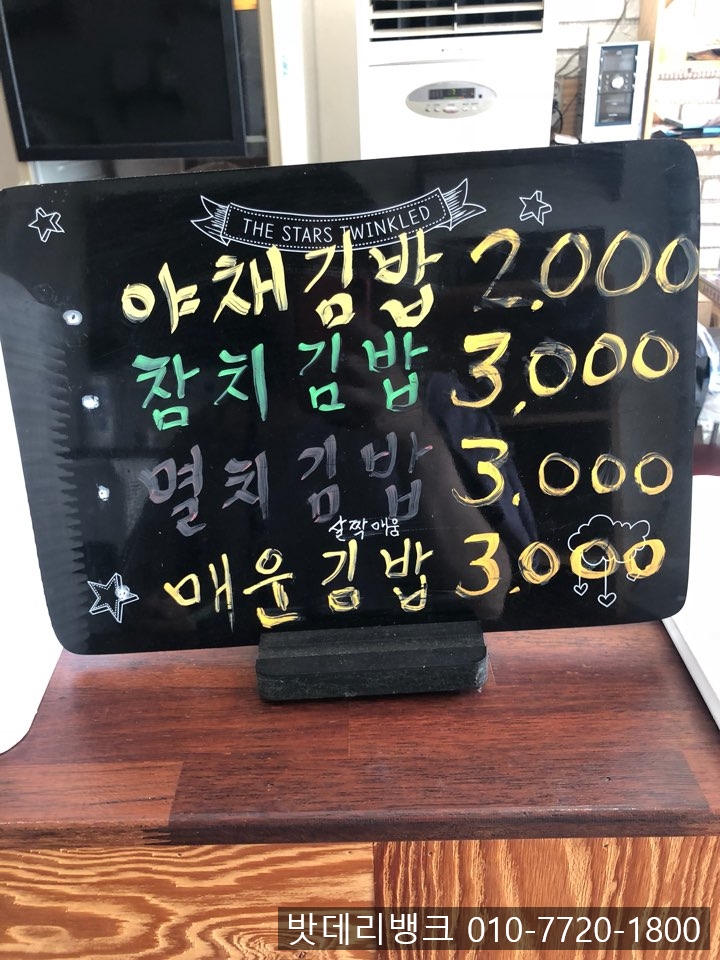 THE STARS TWINKLED
야채김밥 2.000
참치김밥 3.000
멸치김밥 3.000
살짝매움
매운김밥 3.000
밧데리뱅크 010-7720-1800